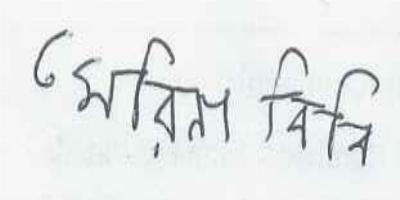 মেরিনা বিবি